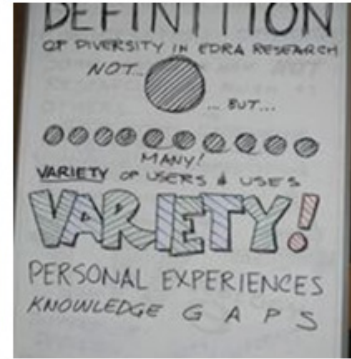 DEFINITION
OF DIVERSITY IN EDRA RESEARCH
NOT...
... BUT...
MANY!
VARIETY OF USERS & USES
VARIETY!
PERSONAL EXPERIENCES
KNOWLEDGE GAPS